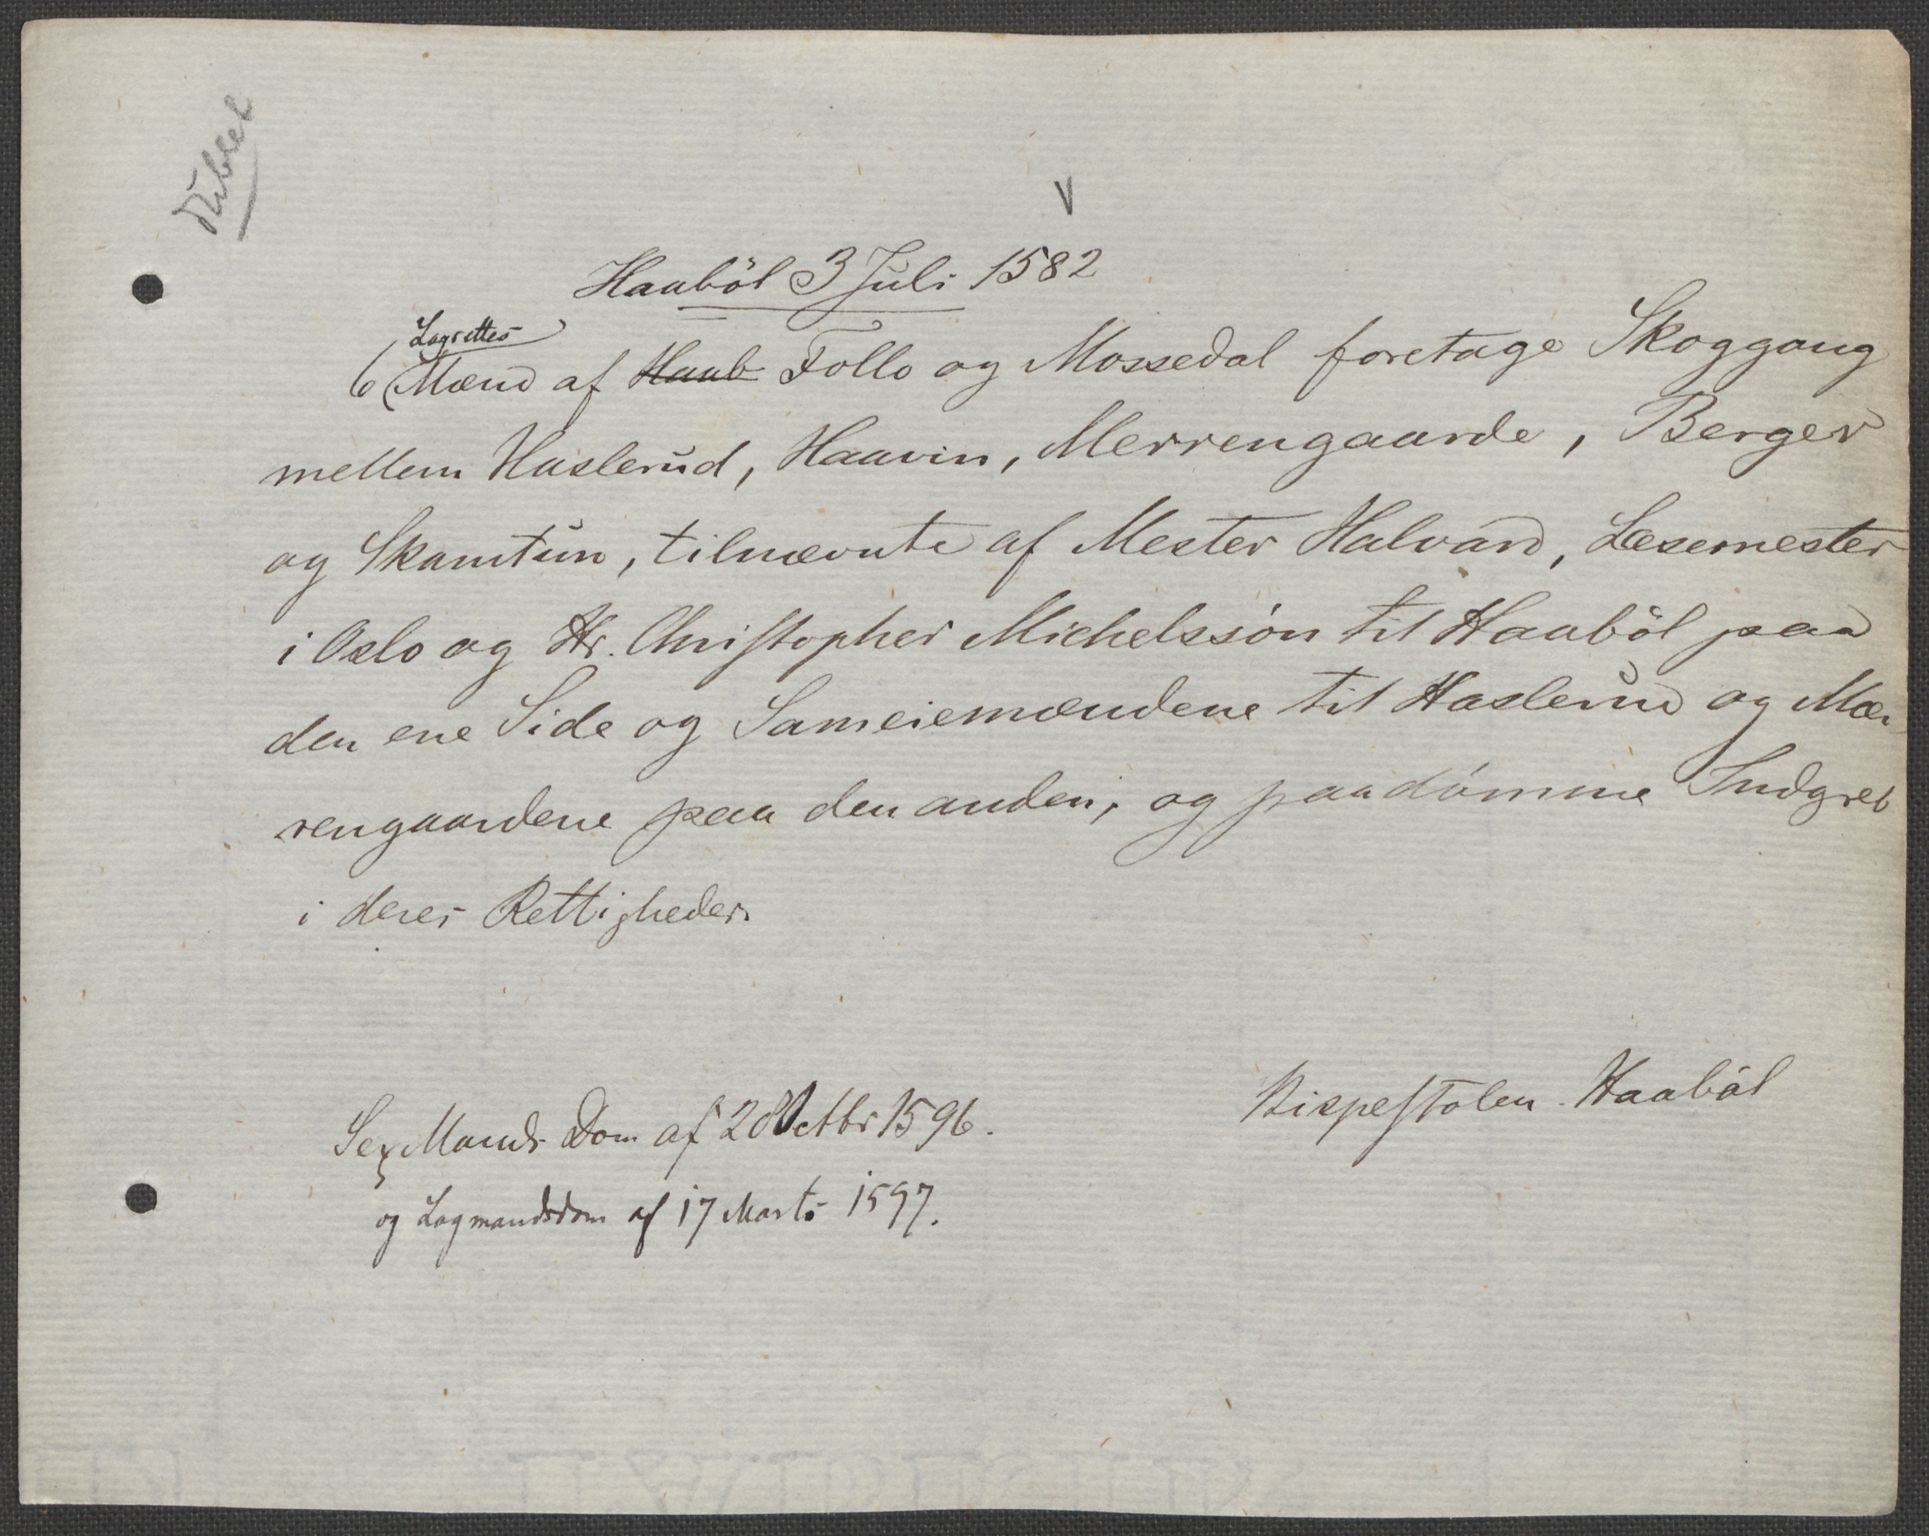 dublet
V
Haaböl 3 Juli 1582
Lagrettes
6 (Mænd af Haab Follo og Mossedal foretage Skoggang
mellem Haslerud, Haavin, Merrengaarde, Berger
og Skamtun, tilnævnte af Mester Halvard, Læsemester
i Oslo og Hr. Christopher Michelssön til Haaböl paa
den ene Side og Sameiemændene til Haslerud og Mær-
rengaardene paa den anden, og paadömme Indgreb
i deres Rettigheder.
Bispestolen. Haaböl
Sex Mands Dom af 28 Octbr 1596.
og Lagmandsdom af 17 Marts 1597.